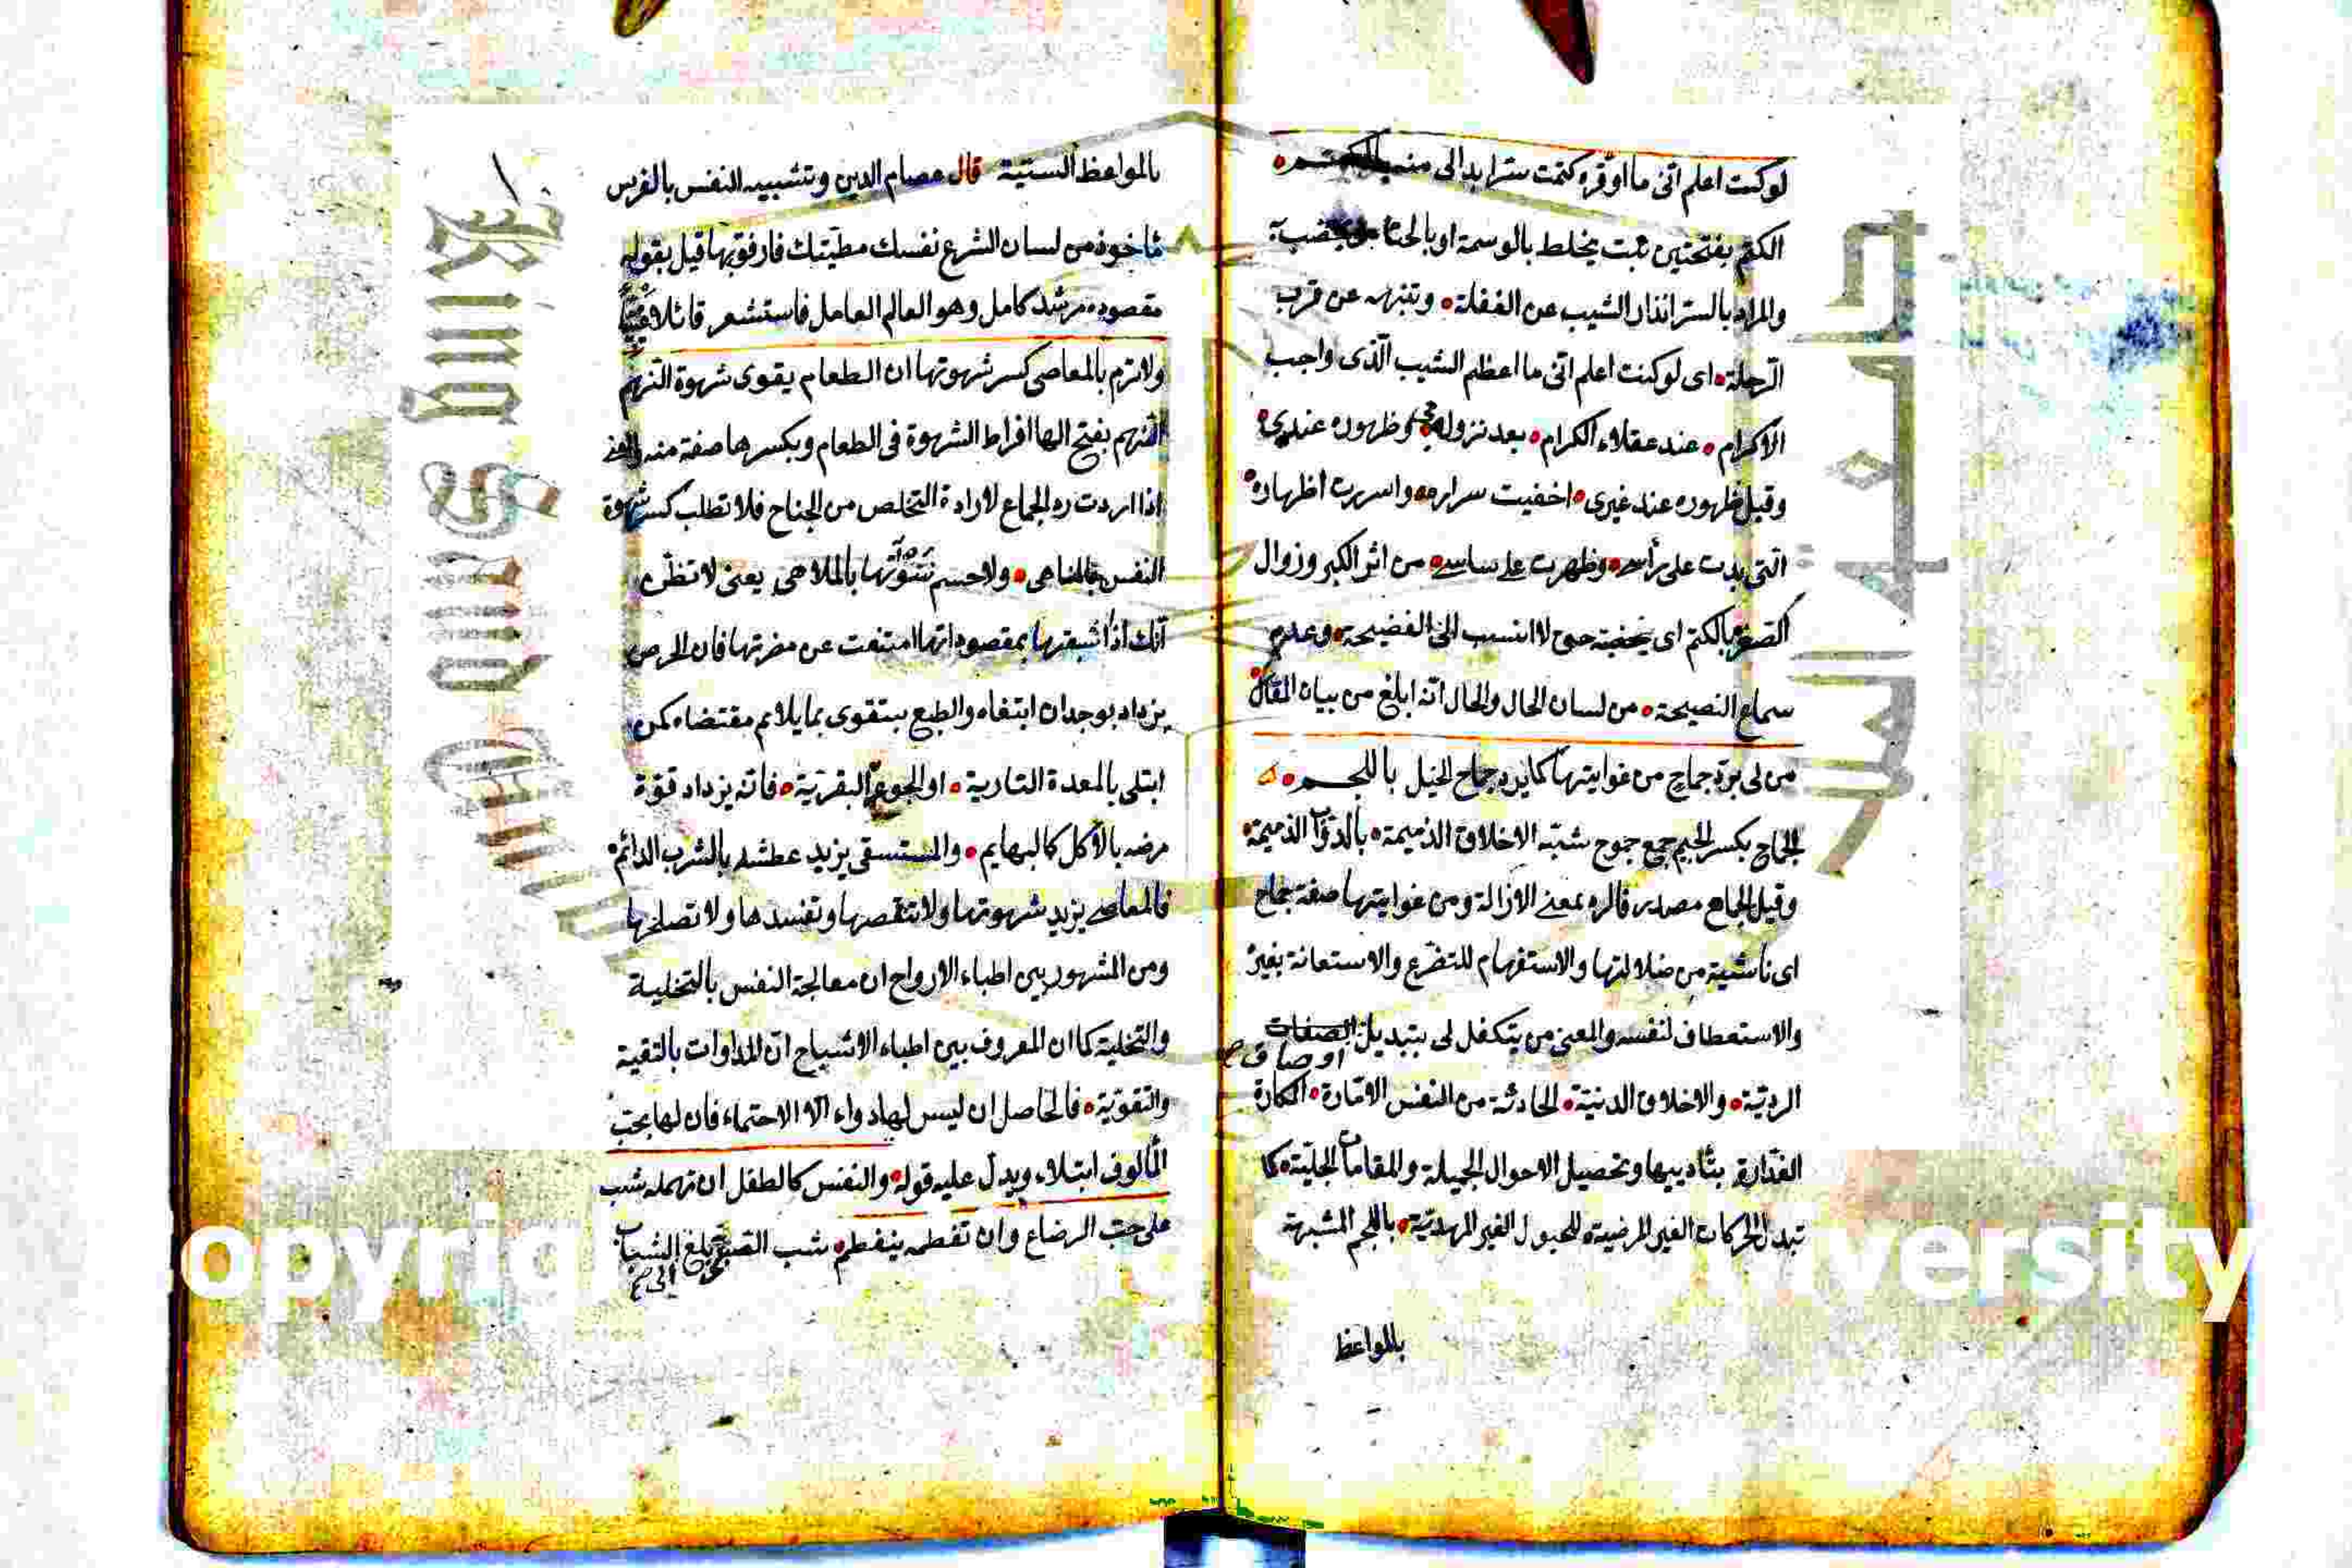 لو كنت اعلم انى ما اوقره كتمت سترا بدالى منه بالكتم
الكتم بفتحتين نبت يخلط بالوسمة او بالحنا
والمراد بالستر انذار الشيب عن الغفلة وتنبه عن قرب
الرحلة اى لو كنت اعلم انى ما اعظم الشيب الذى واجب
الاكرام عند عقلاء الكرام بعد نزوله وظهوره عندى
وقبل ظهوره عند غيرى اخفيت سراره واسررت اظهاره
التى بدت على رأسى وظهرت على ساسى من اثر الكبر وزوال
بالكتم اى يخضبته حتى لا انتسب الى الفضيحة وعدم
سماع النصيحة من لسان الحال والحال انه ابلغ من بيان المقال
من لى برد جماح من غوايتها كما يرد جماح الخيل باللجم
الجماح بكسر الجيم جمع جموح شبه الاخلاق الذميمة بالدواب الذميمة
وقيل الجماح مصدر فالرد بمعنى الازالة ومن غوايتها صفة جماح
اى ناشئية من ضلالتها والاستفهام للتضرع والاستعانة بغير
والاستعطاف لنفسه والمعنى من يتكفل لى بتبديل الصفات
اوصاف صح
الردية والاخلاق الدنية الحادثة من النفس الامارة المكارة
الغدارة بتأديبها وتحصيل الاحوال الجميلة والمقامات الجلية كما
تبدل الحركات الغير المرضية للخيول الغير المهدية باللجم المشبهة
بالمواعظ
بالمواعظ السنية قال عصام الدين وتشبيه النفس بالفرس
مأخوذ من لسان الشرع نفسك مطيتك فارفق بها قيل بقوله
مقصوده مرشد كامل وهو العالم العامل فاستشعر قائلا
ولا ترم بالمعاصى كسر شهوتها ان الطعام يقوى شهوة النهم
النهم بفتح الها افراط الشهوة فى الطعام وبكسرها صفة منه
اذا اردت رد الجماع لارادة التخلص من الجناح فلا تطلب كسر شهوة
النفس بالمناهى ولا حسم بالملاهى يعنى لا تظن
انك اذا اشبعتها بمقصوداتها امتنعت عن مضرتها فان الحرص
يزداد بوجدان ابتغاه والطبع يتقوى بما يلايم مقتضاه كمن
ابتلى بالمعدة النارية او الجوع البقرية فانه يزداد قوة
مرضه بالأكل كالبهايم والمستسقى يزيد عطشه بالشرب الدائم
فالمعاصى يزيد شهوتها ولا تنقصها وتفسدها ولا تصلحها
ومن المشهور بين اطباء الارواح ان معالجة النفس بالتخلية
والتحلية كما ان المعروف بين اطباء الاشباح ان المداوات بالتقية
والتقوية فالحاصل ان ليس لها دواء الا الاحتماء فان لها بحب
المألوف ابتلاء ويدل عليه قوله والنفس كالطفل ان تهمله شب
على حب الرضاع وان تفطمه ينفطم شب الصبى بلغ الشباب